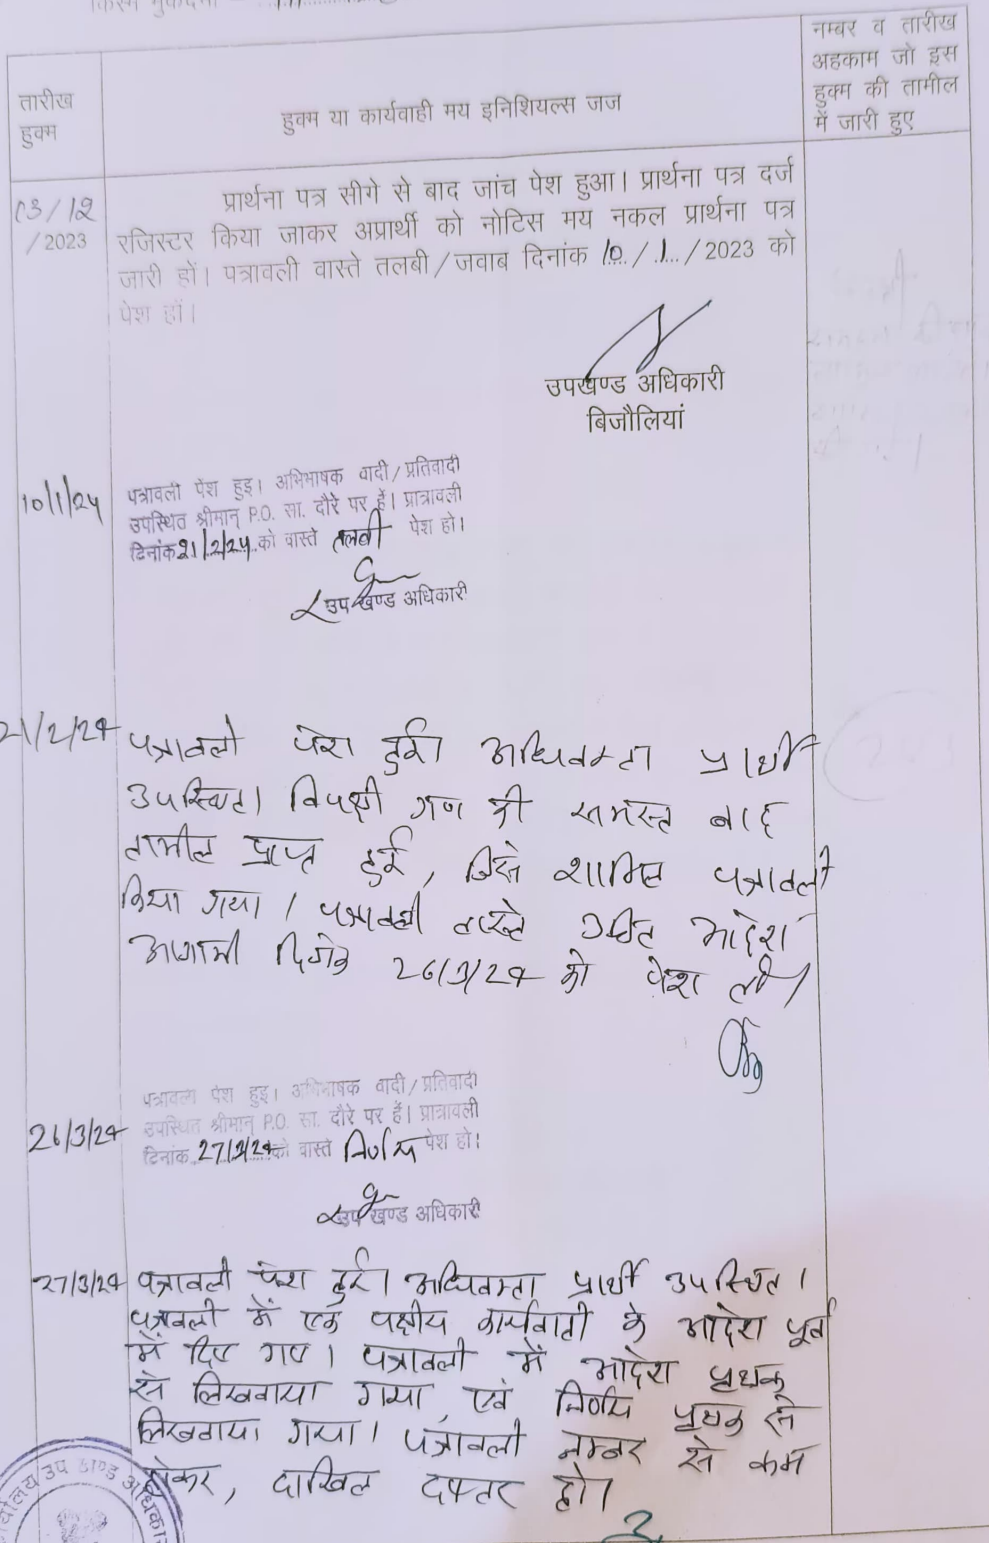 किस्म मुकदमा
तारीख
हुक्म
हुक्म या कार्यवाही मय इनिशियल्स जज
नम्बर व तारीख
अहकाम जो इस
हुक्म की तामील
में जारी हुए
03/12
/2023
प्रार्थना पत्र सीगे से बाद जांच पेश हुआ। प्रार्थना पत्र दर्ज
रजिस्टर किया जाकर अप्रार्थी को नोटिस मय नकल प्रार्थना पत्र
जारी हों। पत्रावली वास्ते तलबी/जवाब दिनांक 10/.1../2023 को
पेश हों।
उपखण्ड अधिकारी
बिजौलियां
10/1/24
पत्रावली पेश हुइ। अभिभाषक वादी/प्रतिवादी
उपस्थित श्रीमान् P.O. सा. दौरे पर हैं। प्रात्रावली
दिनांक 21/2/24 को वास्ते तलबी पेश हो।
उप खण्ड अधिकारी
21/2/24
पत्रावली पेश हुई। अधिवक्ता प्रार्थी
उपस्थित। विपक्षी गण की समस्त बाद
तामील प्राप्त हुई, जिसे शामिल पत्रावली
किया गया। पत्रावली वास्ते उचित आदेश
आगामी दिनांक 26/3/24 को पेश हो।
26/3/24
पत्रावली पेश हुइ। अभिभाषक वादी/प्रतिवादी
उपस्थित श्रीमान् P.O. सा. दौरे पर हैं। प्रात्रावली
दिनांक 27/3/24 को वास्ते निर्णय पेश हो।
उप खण्ड अधिकारी
27/3/24
पत्रावली पेश हुई। अधिवक्ता प्रार्थी उपस्थित।
पत्रावली में एक पक्षीय कार्यवाही के आदेश पूर्व
में दिए गए। पत्रावली में आदेश पृथक
से लिखवाया गया, एवं निर्णय पृथक से
लिखवाया गया। पत्रावली नम्बर से कम
होकर, दाखिल दफ्तर हो।
कार्यालय उप खण्ड अधिकारी